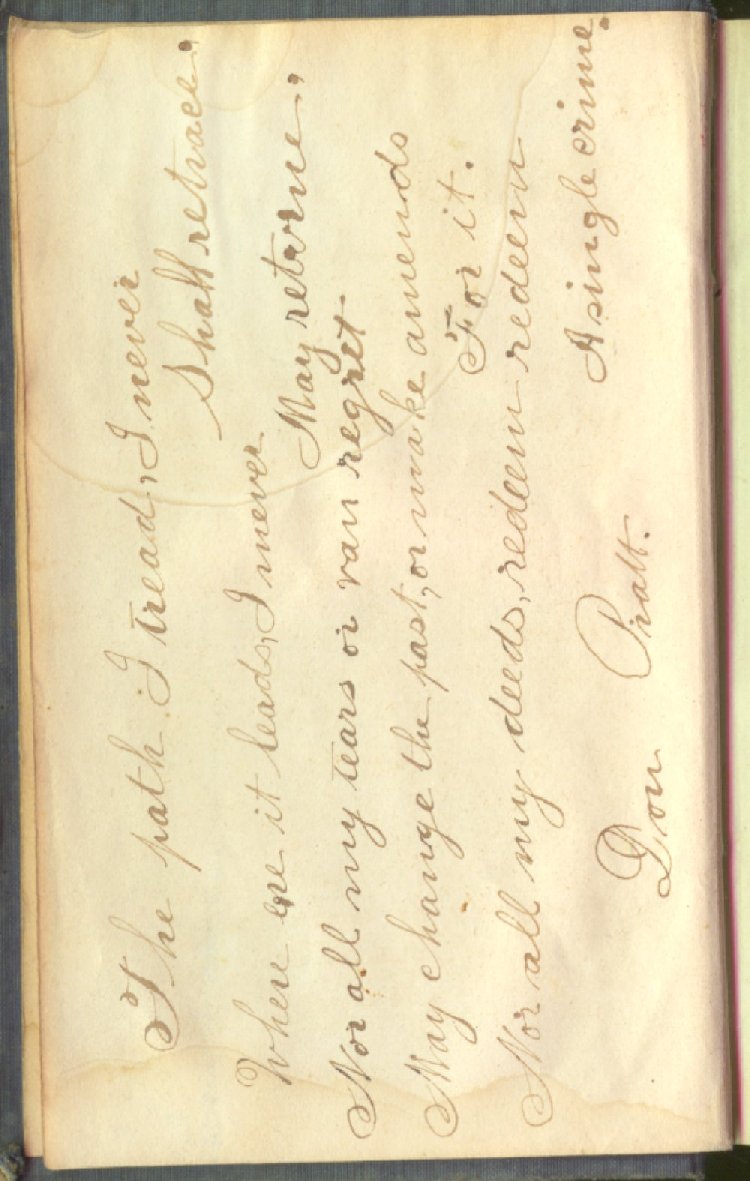 The path I tread, I never
Shall retrace,
Where ere it leads, I never
May retorne,
Nor all my tears or van regret
May change the past, or make amends
For it.
Nor all my deeds, redeem redeem
A single crime.
Don Pratt.